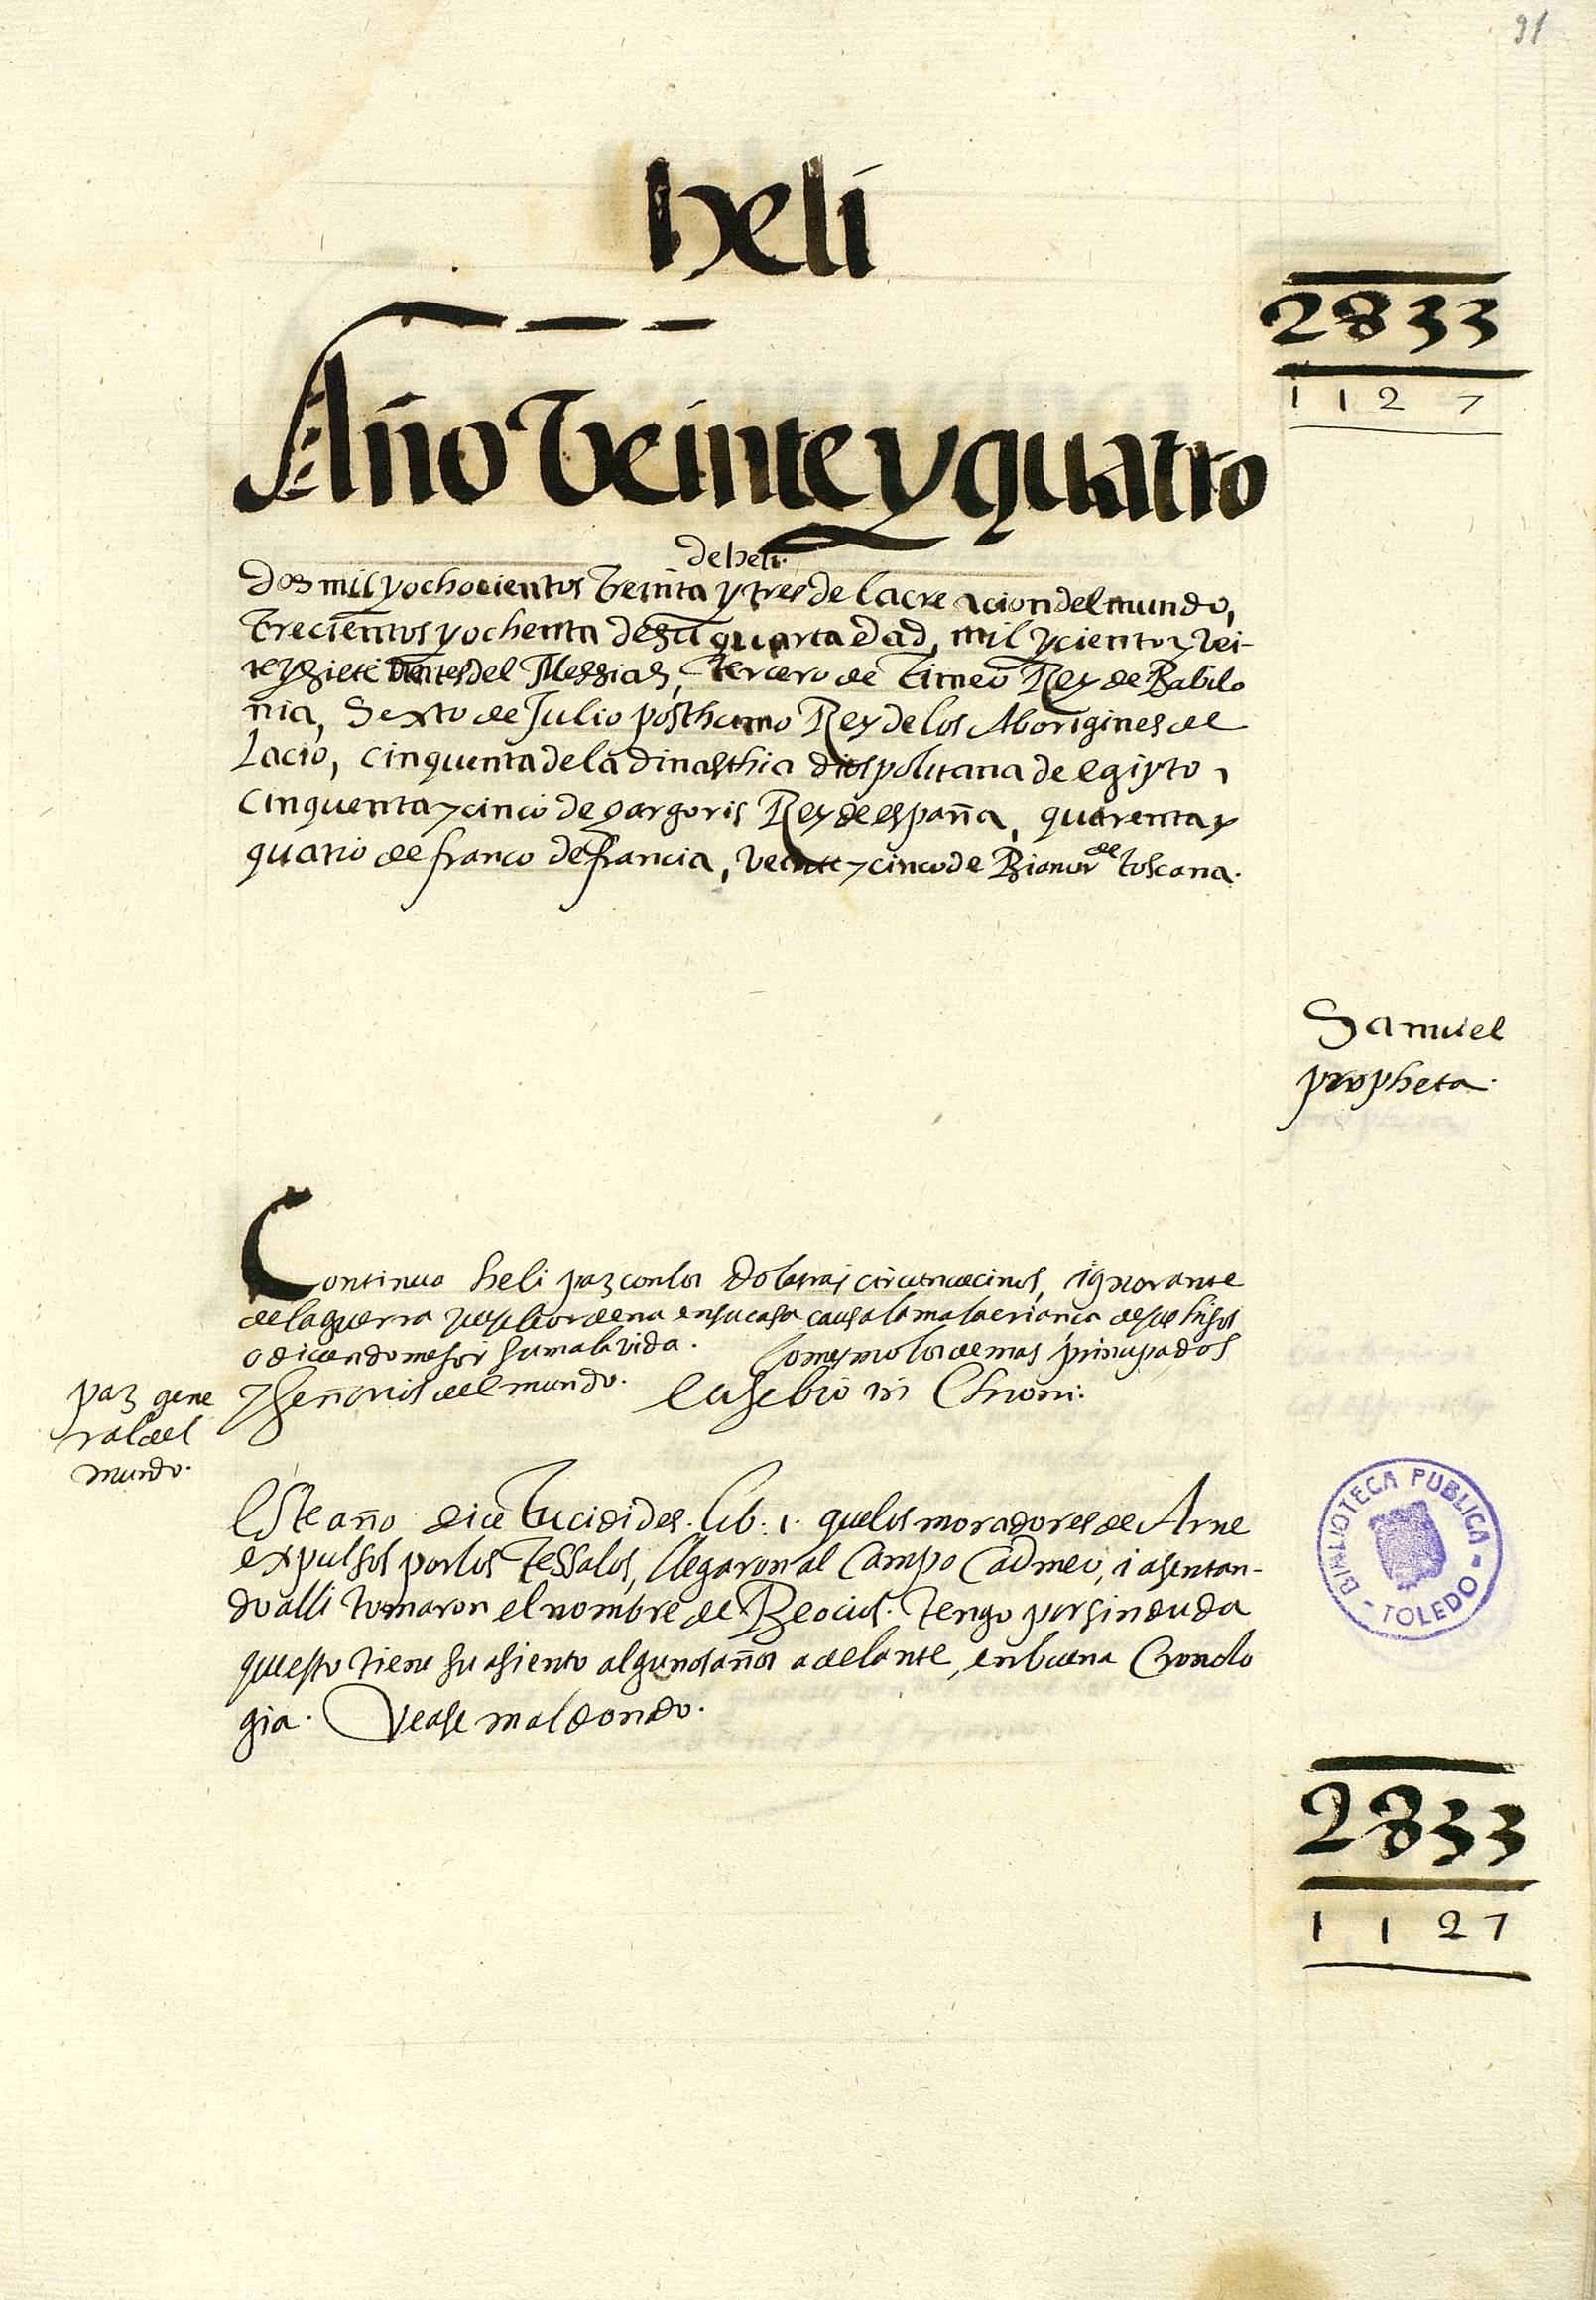 91
heli
2833
1127
Año Veinte y quatro
de heli.
Dos mil y ochocientos treinta y tres de la creacion del mundo,
trecientos y ochenta de su quarta edad, mil y ciento y vei-
te y siete antes del Messias, tercero de Timeo Rey de Babilo
nia, Sexto de Julio posthumo Rey de los Aborigines de
Lacio, cinquenta de la dinasthia diospolitana de egipto,
cinquenta y cinco de gargoris Rey de españa, quarenta y
quatro de franco de francia, veinte y cinco de Bianor de toscana.
Samuel
propheta.
Continua heli paz con los circunvecinos, ignorante
de la guerra que en su casa causa la mala criança de sus hijos
o diciendo mejor su mala vida. Lo mesmo los demas principados
y señorios del mundo. Eusebio in Chroni.
paz gene
ral del
mundo.
Este año dice Tucidides. lib. 1. que los moradores de Arne
expulsos por los Tessalos, llegaron al campo Cadmeo, i asentan-
do alli tomaron el nombre de Beocios. Tengo por sin duda
questo tiene su asiento algunos años adelante, en buena Cronolo
gia. Vease maldonado.
BIBLIOTECA PUBLICA
- TOLEDO -
2833
1127